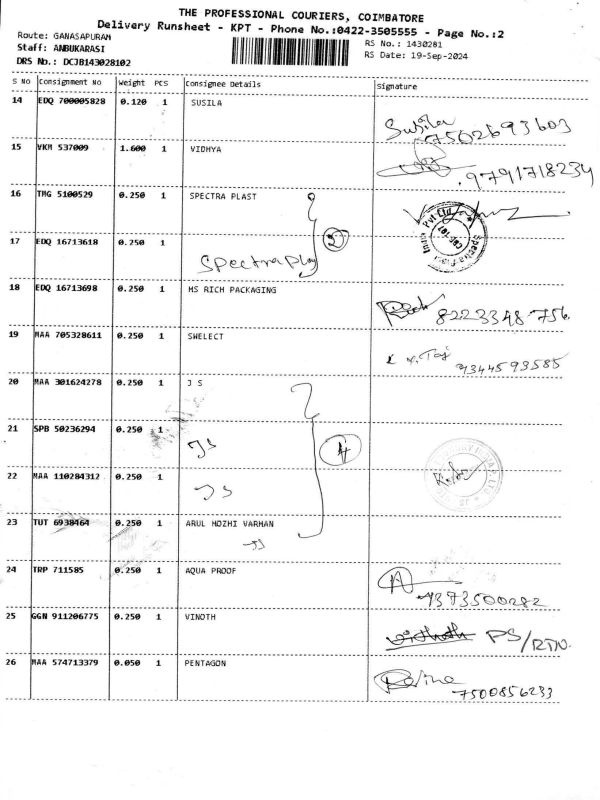 THE PROFESSIONAL COURIERS, COIMBATORE
Delivery Runsheet - KPT - Phone No.:0422-3505555 - Page No.:2
Route: GANASAPURAM
RS No.: 1430281
Staff: ANBUKARASI
RS Date: 19-Sep-2024
DRS No.: DCJB143028102
S No Consignment No Weight PCS Consignee Details Signature
14 EDQ 700005828 0.120 1 SUSILA
Susila
7502693603
15 VKM 537009 1.600 1 VIDHYA
9791718234
16 TMG 5100529 0.250 1 SPECTRA PLAST
17 EDQ 16713618 0.250 1
2
Spectra Play
18 EDQ 16713698 0.250 1 MS RICH PACKAGING
8223348 756
19 MAA 705328611 0.250 1 SWELECT
9344593585
20 MAA 301624278 0.250 1 J S
21 SPB 50236294 0.250 1
JS
4
22 MAA 110284312 0.250 1
JS
23 TUT 6938464 0.250 1 ARUL MOZHI VARMAN
JS
24 TRP 711585 0.250 1 AQUA PROOF
7373500282
25 GGN 911206775 0.250 1 VINOTH
PS/RTN.
26 MAA 574713379 0.050 1 PENTAGON
7500856233